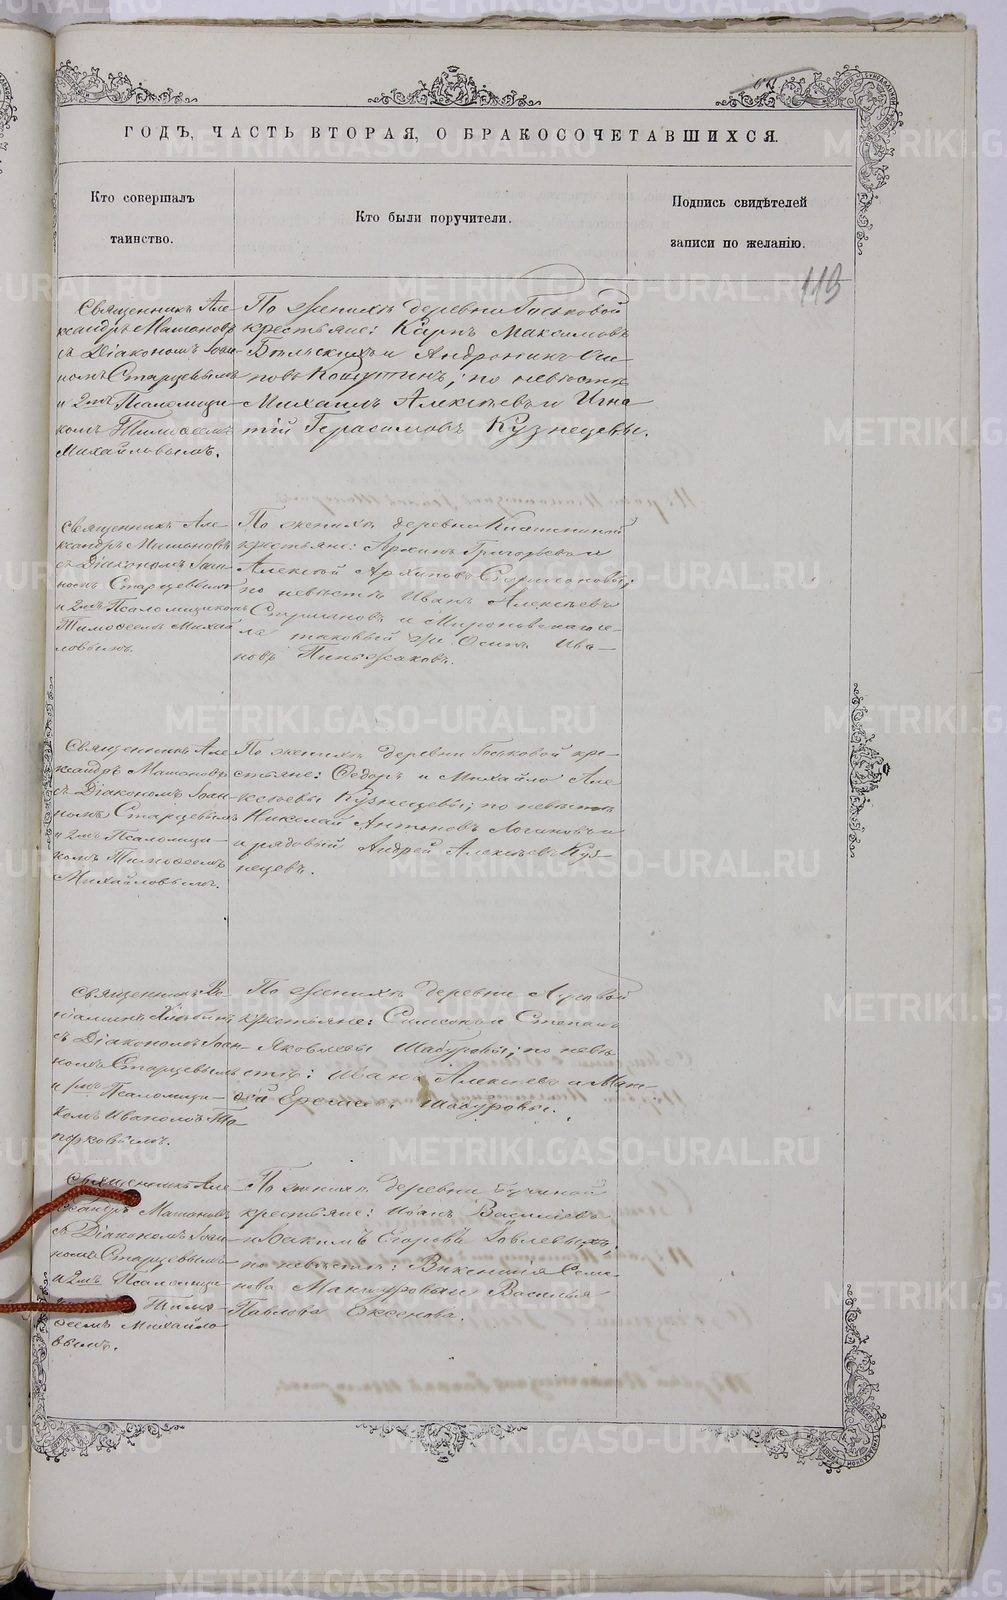 ГОДЪ, ЧАСТЬ ВТОРАЯ, О БРАКОСОЧЕТАВШИХСЯ.
Кто совершалъ
таинство.
Кто были поручители.
Подпись свидѣтелей
записи по желанію.
113
Священникъ Але-
ксандръ Машановъ
съ Діакономъ Іоан-
номъ Старцевымъ
и 2мъ Псаломщи-
комъ Тимоѳеемъ
Михайловымъ.
По женихѣ деревни Госьковой
крестьяне: Карпъ Максимовъ
Бѣльскихъ и Андроникъ Оси-
повъ Кошутинъ; по невѣстѣ
Михаилъ Алексѣевъ и Игна
тій Герасимовъ Кузнецовы.
Священникъ Але-
ксандръ Машановъ
съ Діакономъ Іоан-
номъ Старцевымъ
и 2мъ Псаломщикомъ
Тимоѳеемъ Михай
ловымъ.
По женихѣ деревни
крестьяне: Архипъ Григорьевъ и
Алексѣй Архиповъ
по невѣстѣ Иванъ Алексѣевъ
и Мироновскаго се-
ла таковый же Осипъ Ива-
новъ Пиньжаковъ.
Священникъ Але
ксандръ Машановъ
съ Діакономъ Іоан-
номъ Старцевымъ
и 2мъ Псаломщи-
комъ Тимоѳеемъ
Михайловымъ.
По женихѣ деревни Госьковой кре-
стьяне: Ѳедоръ и Михайло Але
ксѣевы Кузнецовы; по невѣстѣ
Николай Антоновъ Логиновъ и
и рядовый Андрей Алексѣевъ Куз-
нецовъ.
Священникъ
съ Діакономъ Іоан-
номъ Старцевымъ
и 1мъ Псаломщи-
комъ Иваномъ То
порковымъ.
По женихѣ деревни Луговой
крестьяне: Симеонъ и Степанъ
Яковлевы Шабуровы; по невѣ
стѣ: Иванъ Алексѣевъ и Мат-
ѳій Еремѣев Шабуровы.
Священникъ Але-
ксандръ Машановъ
съ Діакономъ Іоан-
номъ Старцевымъ
и 2мъ Псаломщи-
Тимо-
ѳеемъ Михайло
вымъ.
По женихѣ деревни Бучиной
крестьяне: Иванъ Васильевъ
и Вакимъ Егоровъ Іовлевыхъ;
по невѣстѣ: Викентія Семе-
нова Мантуровы и Василья
Павлова Оксенова.
METRIKI.GASO-URAL.RU